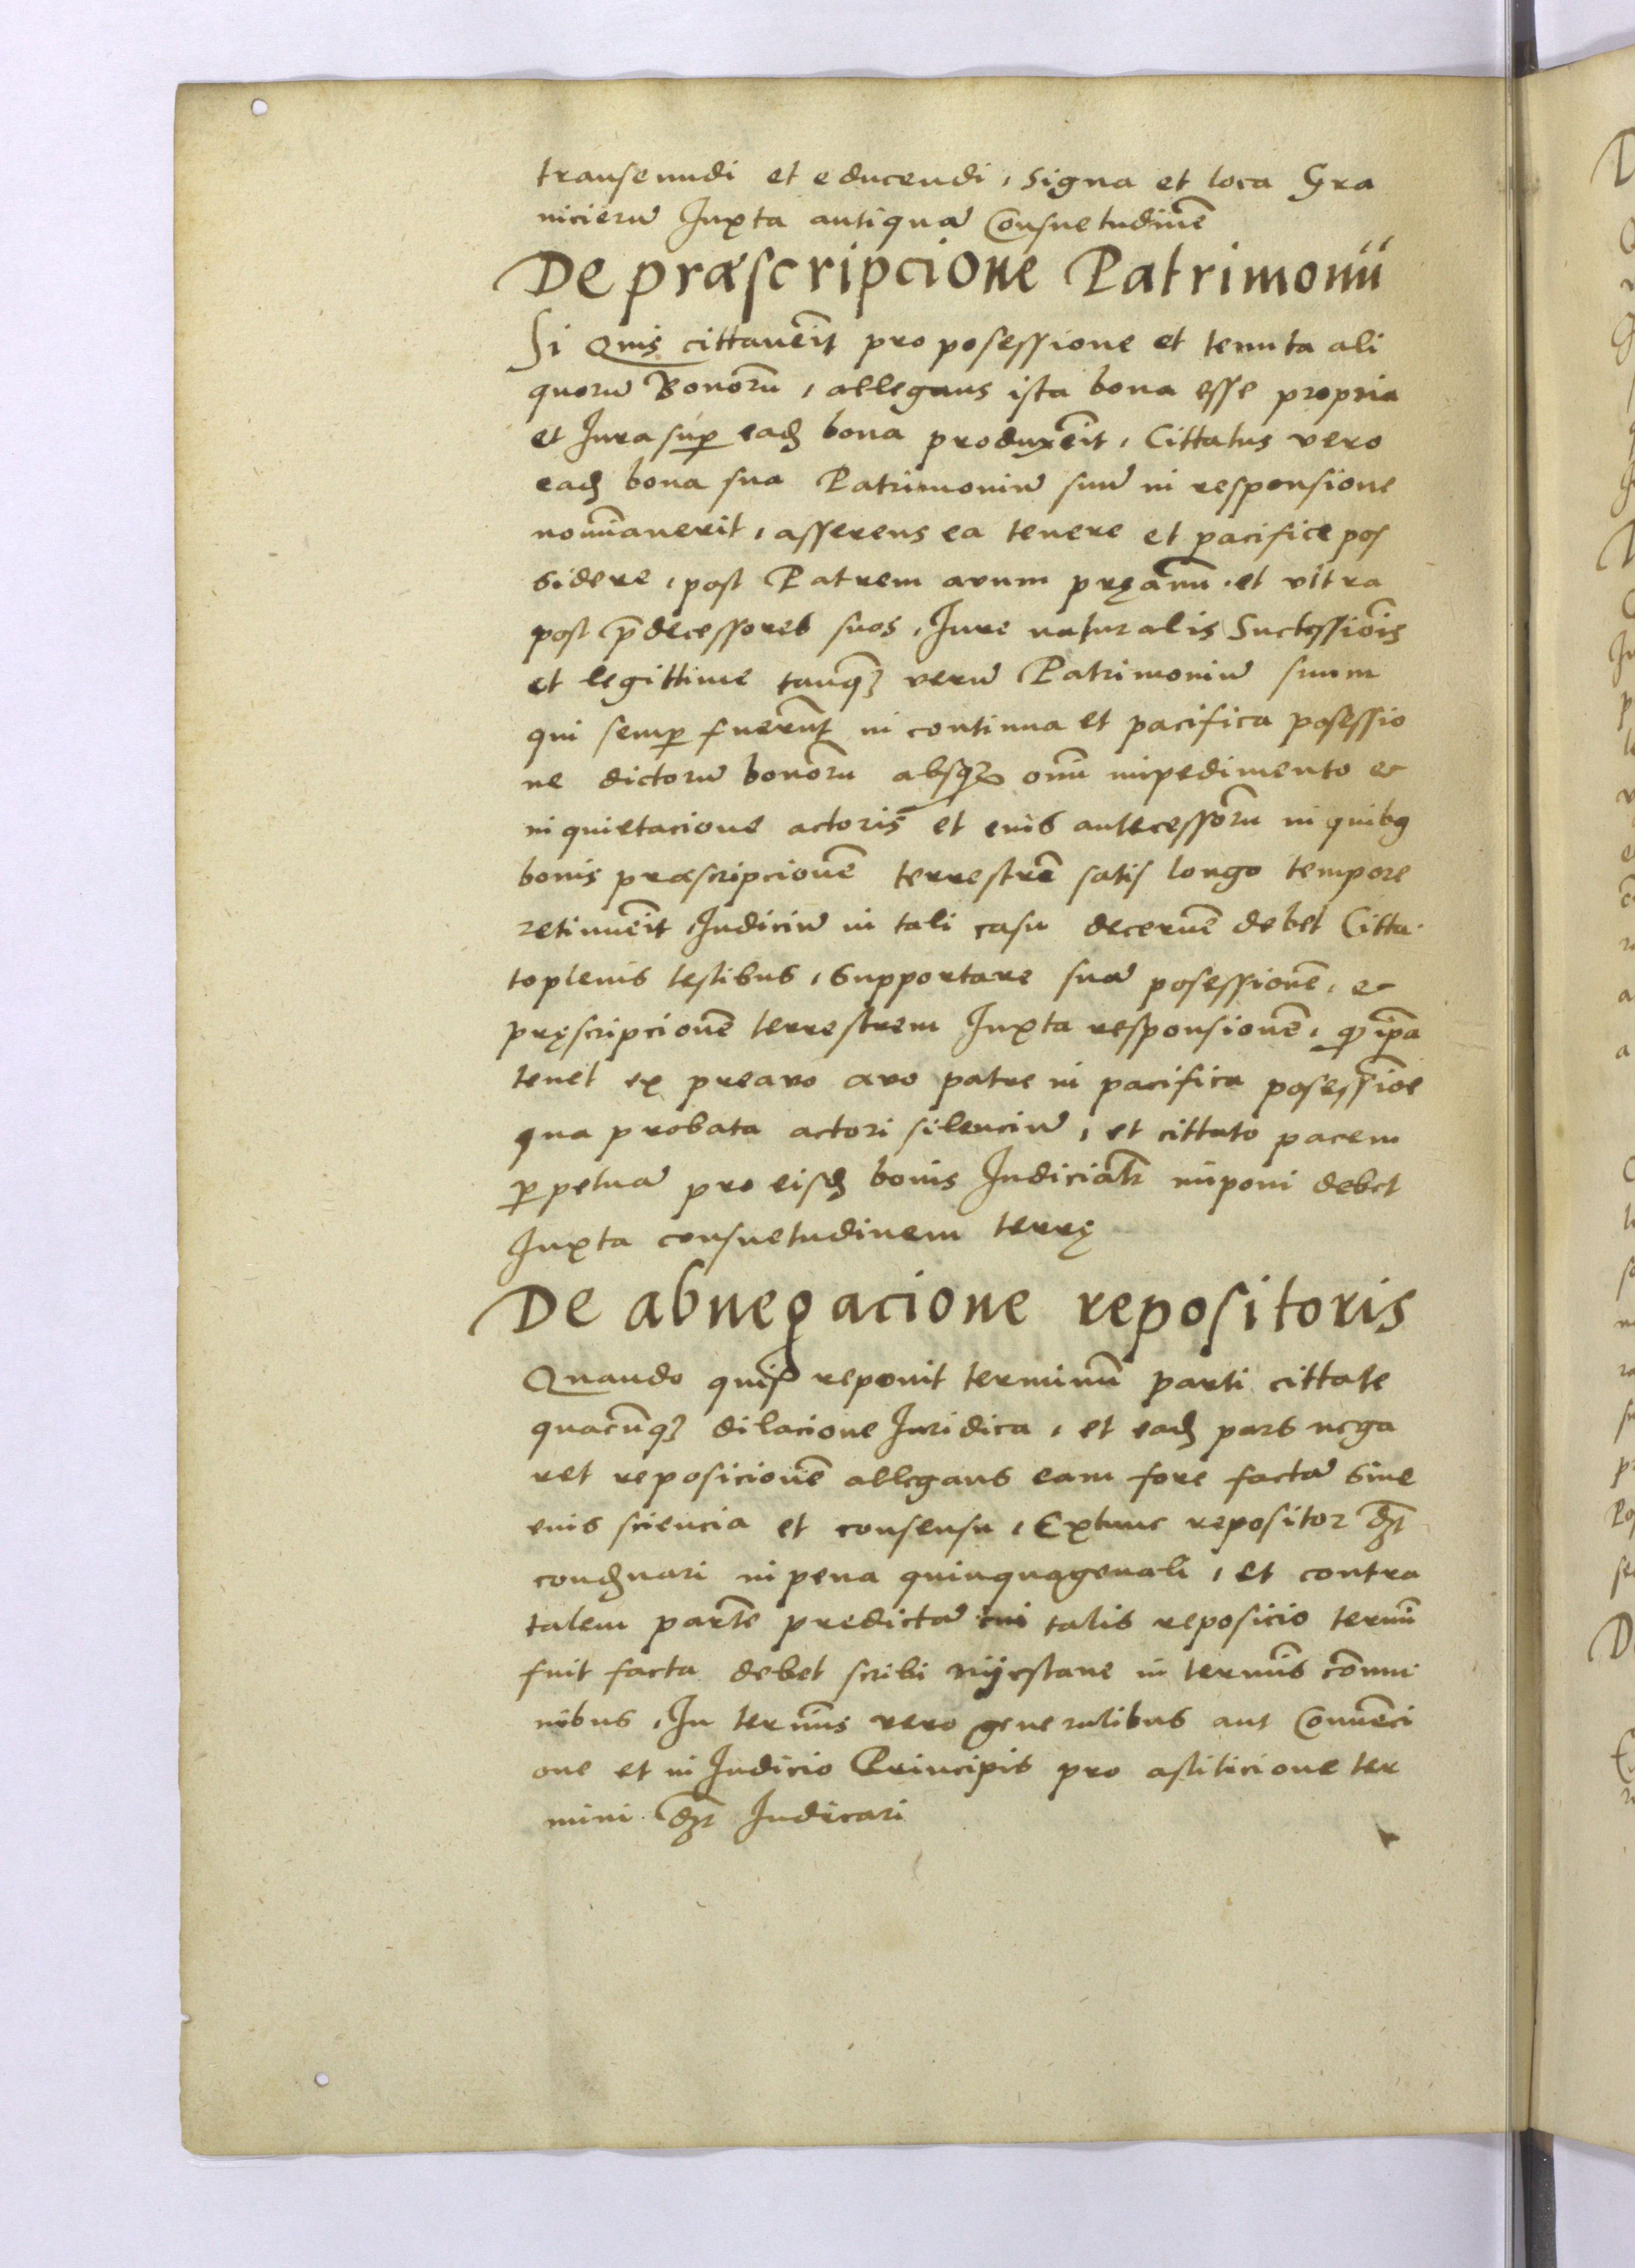 transeundi et educendi, signa et loca Gra
nicierū Juxta antiquā Consuetudinē
De præscripcione Patrimonii
Si Quis cittauerīt pro posessione et tenuta ali
quorū Bonorū, allegans ista bona esse propria
et Jura suꝑ eadꝫ bona produxerīt, Cittatus vero
eadꝫ bona sua Patrimoniū suū in responsione
nomīauerit, asserens ea tenere et pacifice pos
sidere, post Patrem auum pręauū, et vltra
post p̄decessores suos, Jure naturalis Successiōis
et legittime tanq̄ꝫ verū Patrimoniū suum
qui semꝑ fuerūt in continua et pacifica posessio
ne dictorū bonorū absqꝫ omī impedimento et
inquietacione actoris et eius antecessorū in quibꝰ
bonis præscripcionē terrestrē satis longo tempore
retinuerīt Judiciū in tali casu decernē debet Citta
to plenis testibus, supportare suā posessionē, et
pręscripcionē terrestrem Juxta responsionē, ꝙ ip̄a
tenet ex preauo auo patre in pacifica posessiōe
qua probata actori silenciū, et cittato pacem
ꝑpetuā pro eisdꝫ bonis Judicialr̄ imponi debet
Juxta consuetudinem terrę
De abnegacione repositoris
Quando quis reponit terminū parti cittate
quacūqꝫ dilacione Juridica, et eadꝫ pars nega
ret reposicionē allegans eam fore factā sine
eius sciencia et consensu, Extunc repositor dꝫ
condꝫnari in pena quinquagenali, et contra
talem partē predictā cui talis reposicio termī
fuit facta debet scribi niyestane in termīs cōmu
nibus, In termīs vero generalibus aut Conuenci
one et in Judicio Principis pro astiticione ter
mini dꝫ Judicari